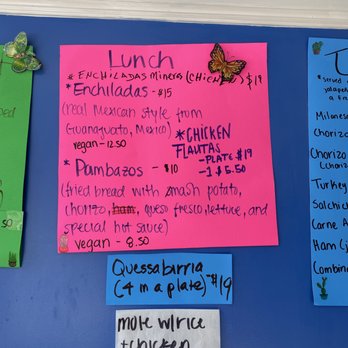 Lunch
* ENCHILADAS Mineras (CHICKEN) $19
*Enchiladas - $15
(real Mexican style from
Guanajuato, Mexico)
vegan - 12.50
*CHICKEN
FLAUTAS
- PLATE $19
- 1 $5.50
* Pambazos - $10
(fried bread with smash potato,
chorizo, ham, queso fresco, lettuce, and
special hot sauce)
vegan - 8.50
Quessabirria
(4 in a plate) - $19
mole w/rice
+chicken
Milanesa
Chorizo
Chorizo
Turkey
Salchich
Carne A
Ham (j
Combin